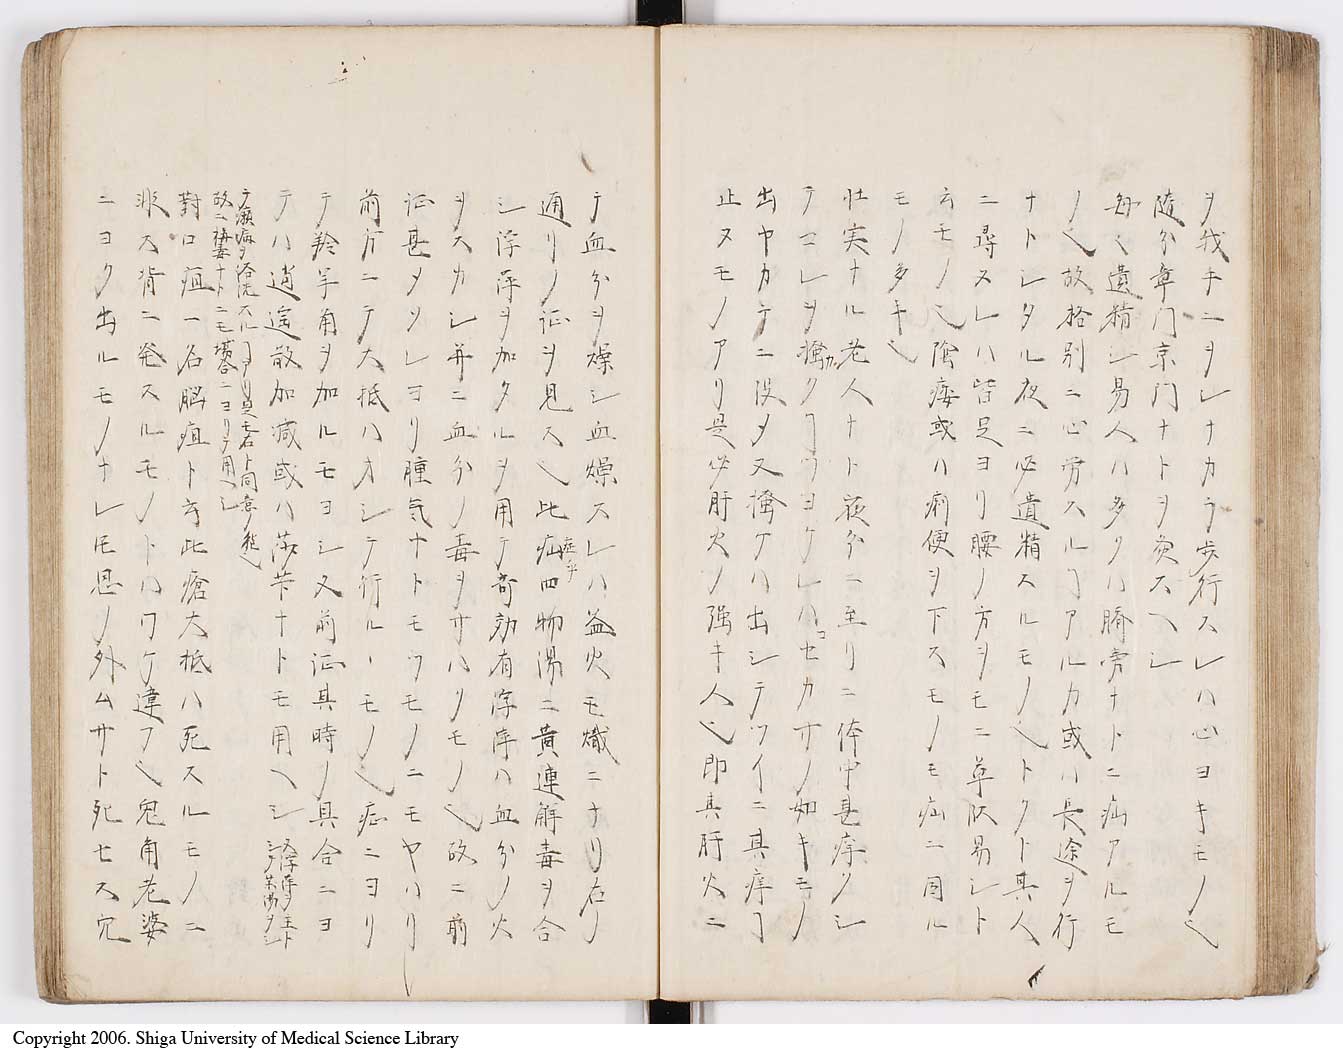 ヲ我チニヲレナカラ歩行スレハ心ヨキモノ也
随分章門京門ナトヲ灸スヘシ
毎々遺精シ易人ハ多クハ臍旁ナトニ疝アルモ
ノ也故格別ニ心労スルヿアルカ或ハ長途ヲ行
ナトシタル夜ニ必遺精スルモノ也トクト其人
ニ尋スレハ皆足ヨリ腰ノ方ヲモニ草臥易シト
云モノ也陰痿或ハ痢便ヲ下スモノモ疝ニ因ル
モノ多キ也
壮実ナル老人ナト夜分ニ至リニ体中甚痒クシ
テコレヲ搔クヿツヨケレハコセカサノ如キモノ
出ヤカテニ没メ又搔ケハ出シテツイニ其痒ヿ
止ヌモノアリ是必肝火ノ強キ人也即其肝火ニ
テ血分ヲ燥シ血燥スレハ益火モ熾ニナリ右ノ
通リノ証ヲ見ス也此疝症乎四物湯ニ黄連解毒ヲ合
シ浮萍ヲ加タルヲ用テ奇効有浮萍ハ血分ノ火
ヲスカシ并ニ血分ノ毒ヲサハクモノ也故ニ前
証甚メソレヨリ腫気ナトモツモノニモヤハリ
前方ニテ大抵ハオシテ行ルヽモノ也症ニヨリ
テ羚羊角ヲ加ルモヨシ又前証其時ノ具合ニヨ
テハ逍遥散加減或ハ莎芐ナトモ用ヘシ
テ癩病ヲ浴洗スルヿアリ是モ右ト同意ノ能也
對口疽一名脳疽ト云此瘡大抵ハ死スルモノニ
非ス背ニ発スルモノトハワケ違フ也鬼角老婆
ニヨク出ルモノナレ𪜈思ノ外ムサト死セス穴